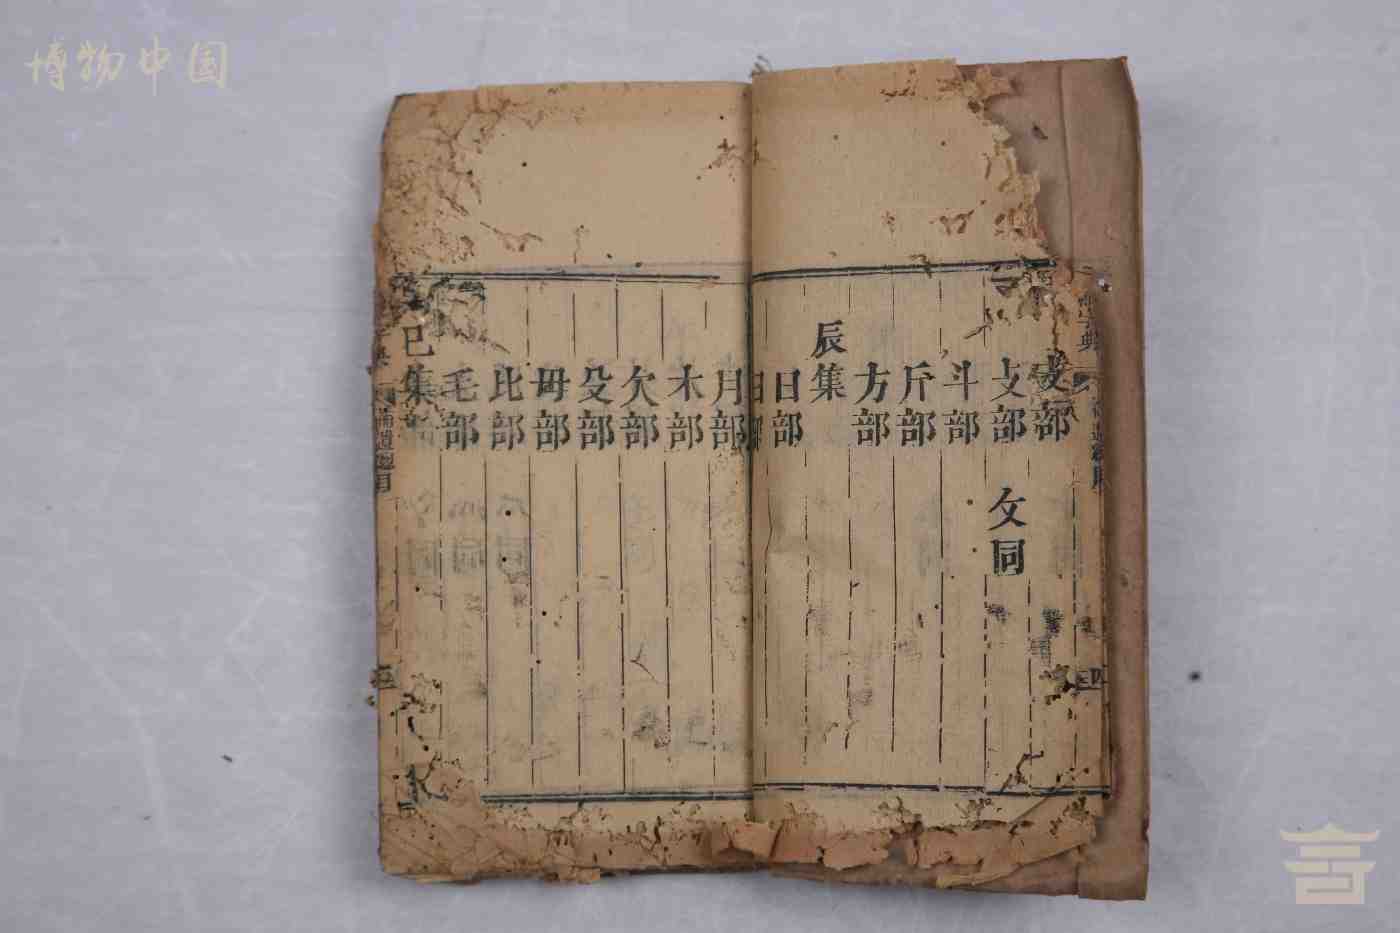 博物中国
字典
四
支部
攴部 攵同
斗部
斤部
方部
辰集
日部
曰部
月部
木部
欠部
殳部
毋部
比部
毛部
巳集
補遺總目
三